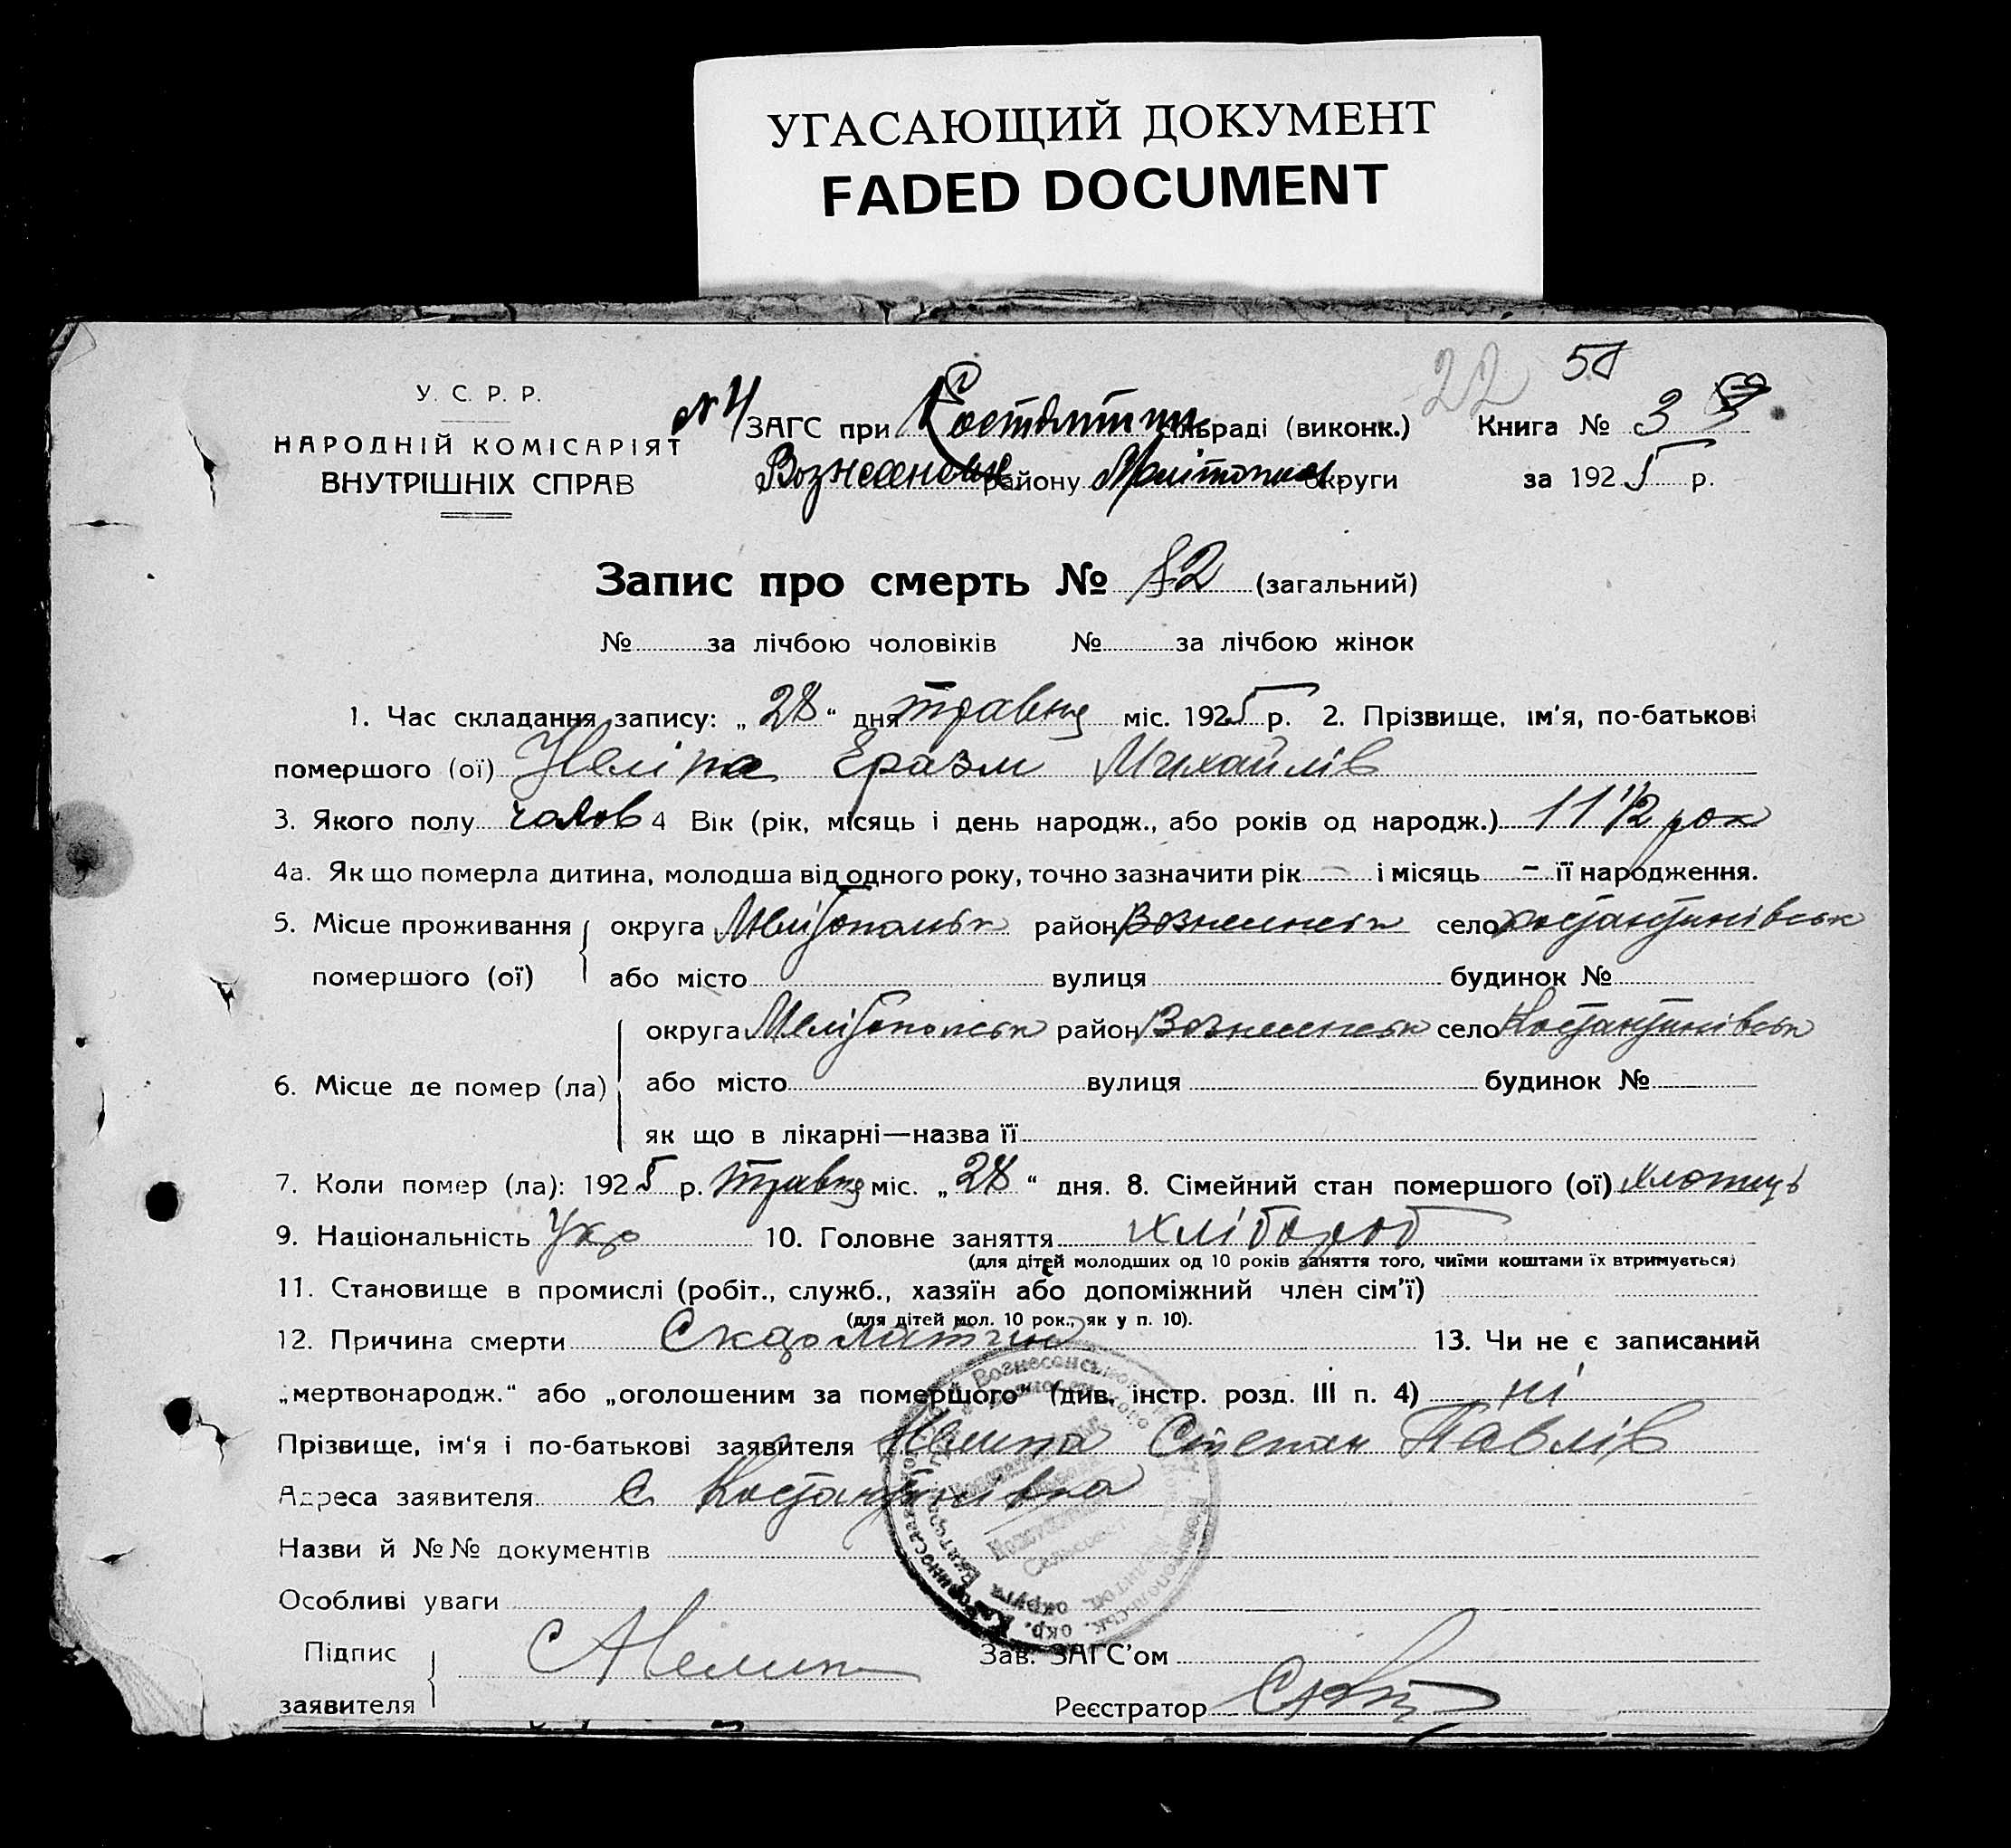 УГАСАЮЩИЙ ДОКУМЕНТ
FADED DOCUMENT
22 58
У. С. Р. Р.
НАРОДНІЙ КОМІСАРІЯТ
ВНУТРІШНІХ СПРАВ
№ 4 ЗАГС при сільраді (виконк.) Книга № 3
району округи за 1925 р.
Запис про смерть № 82 (загальний)
№ за лічбою чоловіків № за лічбою жінок
1. Час складання запису: „28“ дня травня міс. 1925 р. 2. Прізвище, ім'я, по-батькові
помершого (ої) Неліпа Еразм Михайлів
3. Якого полу чолов 4 Вік (рік, місяць і день народж., або років од народж.) 11 1/2 рок
4а. Як що померла дитина, молодша від одного року, точно зазначити рік – і місяць – її народження.
5. Місце проживання округа Мелітопольськ район село
помершого (ої) або місто вулиця будинок №
округа Мелітопольськ район село Костянтинівськ
6. Місце де помер (ла) або місто вулиця будинок №
як що в лікарні—назва її
7. Коли помер (ла): 1925 р. травня міс. „28“ дня. 8. Сімейний стан помершого (ої) хлопець
9. Національність Укр 10. Головне заняття хлібороб
(для дітей молодших од 10 років заняття того, чиїми коштами їх втримується)
11. Становище в промислі (робіт., служб., хазяїн або допоміжний член сім'ї)
(для дітей мол. 10 рок., як у п. 10).
12. Причина смерти Скарлатин 13. Чи не є записаний
„мертвонародж.“ або „оголошеним за помершого“ (див. інстр. розд. III п. 4) ні
Прізвище, ім'я і по-батькові заявителя Нелипа Степан Павлів
Адреса заявителя с. Костянтинівка
Назви й №№ документів
Особливі уваги
Підпис
заявителя С Нелипа
Зав. ЗАГС'ом
Реєстратор